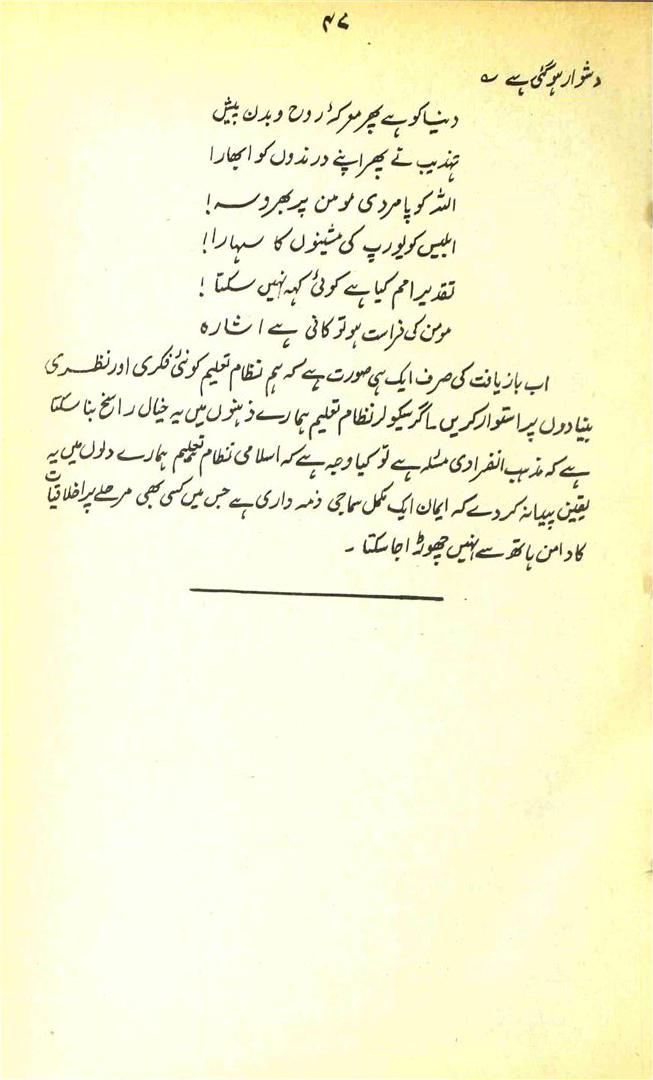 ۴۷
دشوار ہو گئی ہے ؎
دنیا کو ہے پھر معرکۂ روح و بدن پیش
تہذیب نے پھر اپنے درندوں کو ابھارا
اللہ کو پامردی مومن پر بھروسہ!
ابلیس کو یورپ کی مشینوں کا سہارا!
تقدیر امم کیا ہے کوئی کہہ نہیں سکتا!
مومن کی فراست ہو تو کافی ہے اشارہ
اب بازیافت کی صرف ایک ہی صورت ہے کہ ہم نظام تعلیم کو نئی فکری اور نظری
بنیادوں پر استوار کریں۔ اگر سیکولر نظام تعلیم ہمارے ذہنوں میں یہ خیال راسخ بنا سکتا
ہے کہ مذہب انفرادی مسئلہ ہے تو کیا وجہ ہے کہ اسلامی نظام تعلیم ہمارے دلوں میں یہ
یقین پیدا نہ کر دے کہ ایمان ایک مکمل سماجی ذمہ داری ہے جس میں کسی بھی مرحلے پر اخلاقیات
کا دامن ہاتھ سے نہیں چھوڑا جا سکتا۔